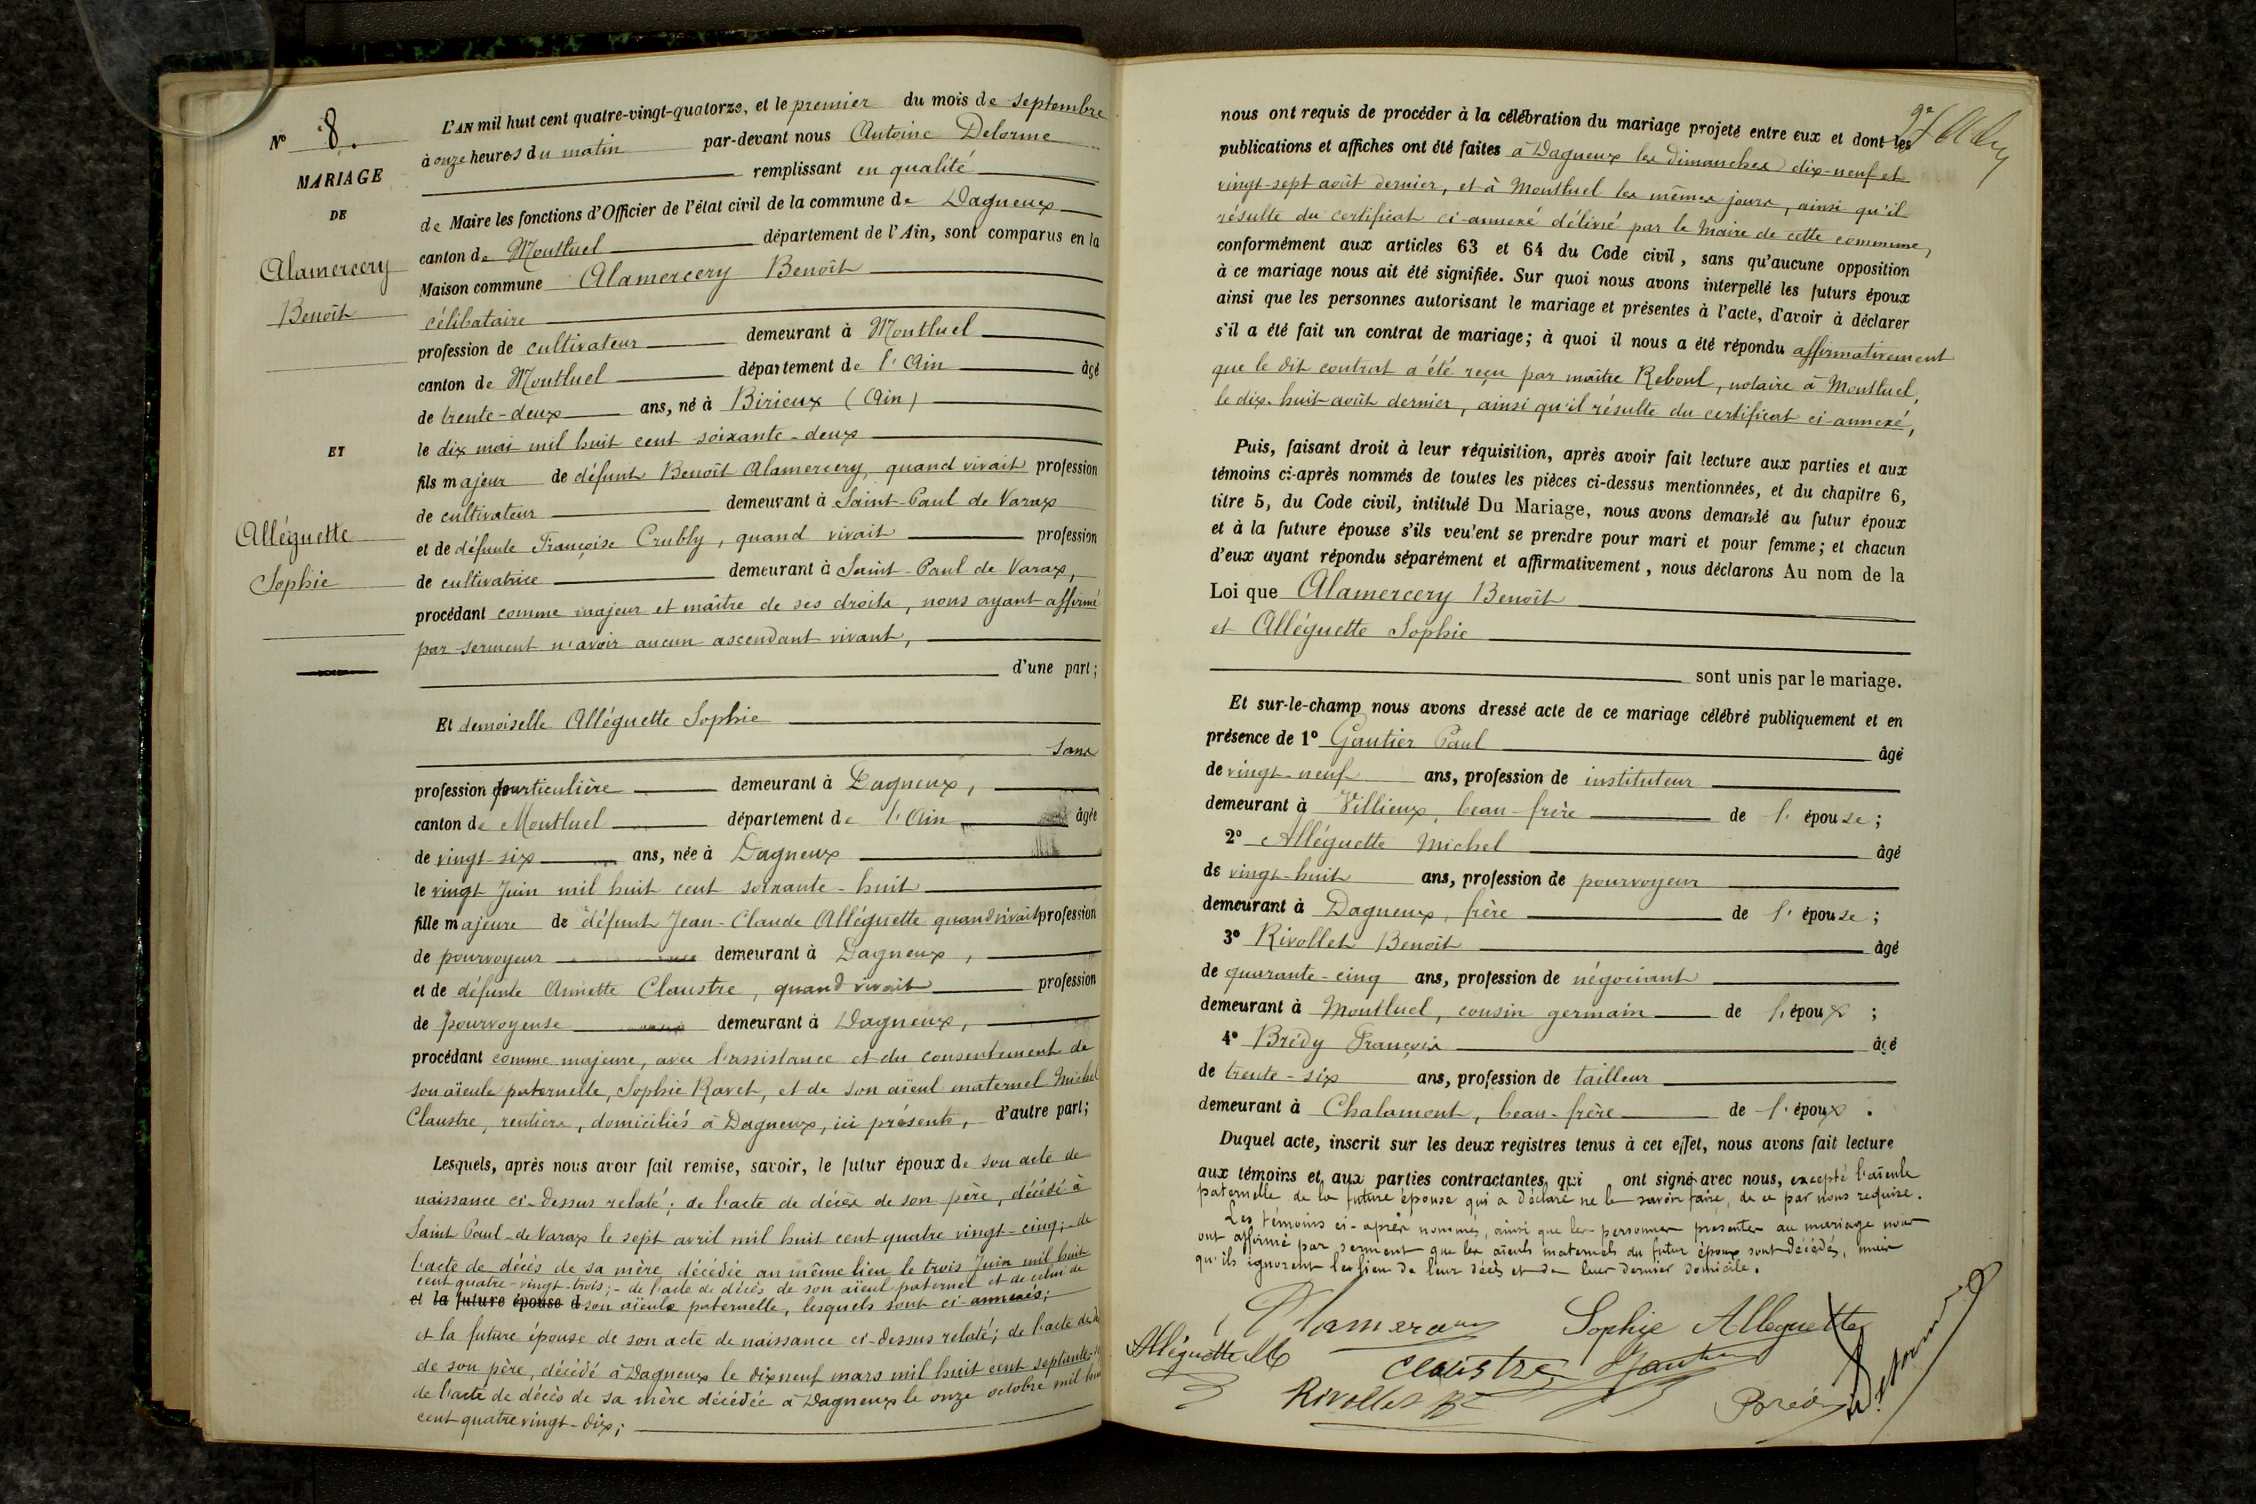 N° 8.
MARIAGE
DE
Alamercery
Benoît
ET
Alléguette
Sophie
L'AN mil huit cent quatre-vingt-quatorze, et le premier du mois de septembre
à onze heures du matin par-devant nous Antoine Delorme
remplissant en qualité
de Maire les fonctions d'Officier de l'état civil de la commune de Dagneux
canton de Montluel département de l'Ain, sont comparus en la
Maison commune Alamercery Benoît
célibataire
profession de cultivateur demeurant à Montluel
canton de Montluel département de l'Ain âgé
de trente-deux ans, né à Birieux (Ain)
le dix mai mil huit cent soixante-deux
fils majeur de défunt Benoît Alamercery, quand vivait profession
de cultivateur demeurant à Saint-Paul de Varax
et de défunte Françoise Crubly, quand vivait profession
de cultivatrice demeurant à Saint-Paul de Varax,
procédant comme majeur et maître de ses droits, nous ayant affirmé
par serment n'avoir aucun ascendant vivant,
d'une part;
Et demoiselle Alléguette Sophie
sans
profession particulière demeurant à Dagneux,
canton de Montluel département de l'Ain âgée
de vingt-six ans, née à Dagneux
le vingt Juin mil huit cent soixante-huit
fille majeure de défunt Jean-Claude Alléguette quand vivait profession
de pourvoyeur demeurant à Dagneux,
et de défunte Annette Claustre, quand vivait profession
de pourvoyeuse demeurant à Dagneux,
procédant comme majeure, avec l'assistance et du consentement de
son aïeule paternelle, Sophie Ravet, et de son aïeul maternel Michel
Claustre, rentiers, domiciliés à Dagneux, ici présents, d'autre part;
Lesquels, après nous avoir fait remise, savoir, le futur époux de son acte de
naissance ci-dessus relaté; de l'acte de décès de son père, décédé à
Saint Paul-de Varax le sept avril mil huit cent quatre vingt-cinq; de
l'acte de décès de sa mère décédée au même lieu le trois Juin mil huit
cent quatre-vingt-trois; - de l'acte de décès de son aïeul paternel et de celui de
et la future épouse d son aïeule paternelle, lesquels sont ci-annexés;
et la future épouse de son acte de naissance ci-dessus relaté; de l'acte de
de son père, décédé à Dagneux le dix neuf mars mil huit cent septante
de l'acte de décès de sa mère décédée à Dagneux le onze octobre mil huit
cent quatre vingt-dix;
nous ont requis de procéder à la célébration du mariage projeté entre eux et dont les
publications et affiches ont été faites à Dagneux les dimanches dix-neuf et
vingt-sept août dernier, et à Montluel les mêmes jours, ainsi qu'il
résulte du certificat ci-annexé délivré par le Maire de cette commune,
conformément aux articles 63 et 64 du Code civil, sans qu'aucune opposition
à ce mariage nous ait été signifiée. Sur quoi nous avons interpellé les futurs époux
ainsi que les personnes autorisant le mariage et présentes à l'acte, d'avoir à déclarer
s'il a été fait un contrat de mariage; à quoi il nous a été répondu affirmativement
que le dit contrat a été reçu par maître Reboul, notaire à Montluel,
le dix-huit août dernier, ainsi qu'il résulte du certificat ci-annexé,
Puis, faisant droit à leur réquisition, après avoir fait lecture aux parties et aux
témoins ci-après nommés de toutes les pièces ci-dessus mentionnées, et du chapitre 6,
titre 5, du Code civil, intitulé Du Mariage, nous avons demandé au futur époux
et à la future épouse s'ils veulent se prendre pour mari et pour femme; et chacun
d'eux ayant répondu séparément et affirmativement, nous déclarons Au nom de la
Loi que Alamercery Benoît
et Alléguette Sophie
sont unis par le mariage.
Et sur-le-champ nous avons dressé acte de ce mariage célébré publiquement et en
présence de 1° Gautier Paul âgé
de vingt-neuf ans, profession de instituteur
demeurant à Villieux, beau-frère de l'épouse;
2° Alléguette Michel âgé
de vingt-huit ans, profession de pourvoyeur
demeurant à Dagneux, frère de l'épouse;
3° Rivollet Benoît âgé
de quarante-cinq ans, profession de négociant
demeurant à Montluel, cousin germain de l'époux;
4° Brédy François âgé
de trente-six ans, profession de tailleur
demeurant à Chalamont, beau-frère de l'époux.
Duquel acte, inscrit sur les deux registres tenus à cet effet, nous avons fait lecture
aux témoins et aux parties contractantes, qui ont signé avec nous, excepté l'aïeule
paternelle de la future épouse qui a déclaré ne le savoir faire, de ce par nous requise.
Les témoins ci-après nommés, ainsi que les personnes présentes au mariage nous
ont affirmé par serment que les aïeuls maternels du futur époux sont décédés, mais
qu'ils ignorent le lieu de leur décès et de leur dernier domicile.
Alamercery Sophie Alleguette
Alléguette M Claustre Gautier
Rivollet Bt Brédy Delorme